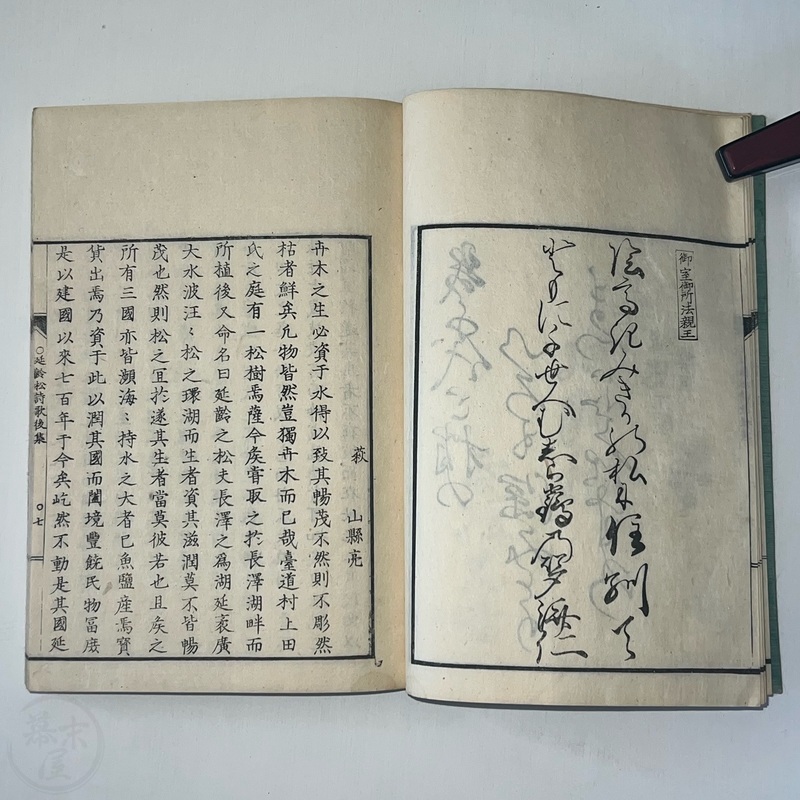 御室御所法親王
陰高きみきりの松に住馴て
ともに千世へむ 鶴の 濟仁
萩 山縣亮
卉木之生必資于水得以致其暢茂不然則不彫然
枯者鮮矣凡物皆然豈獨卉木而已哉臺道村上田
氏之庭有一松樹焉薩今矦嘗取之於長澤湖畔而
所植後又命名曰延齡之松夫長澤之爲湖延袤廣
大水波汪〻松之環湖而生者資其滋潤莫不皆暢
茂也然則松之冝於遂其生者當莫彼若也且矦之
所有三國亦皆瀕海〻持水之大者已魚鹽産焉寶
貨出焉乃資于此以潤其國而闔境豐饒民物冨庶
是以建國以來七百年于今矣屹然不動是其國延
○延齡松詩歌後集 ○七
幕末屋